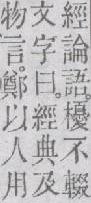 經論語。櫌不輟
文字曰。經典及
物言。鄭以人用